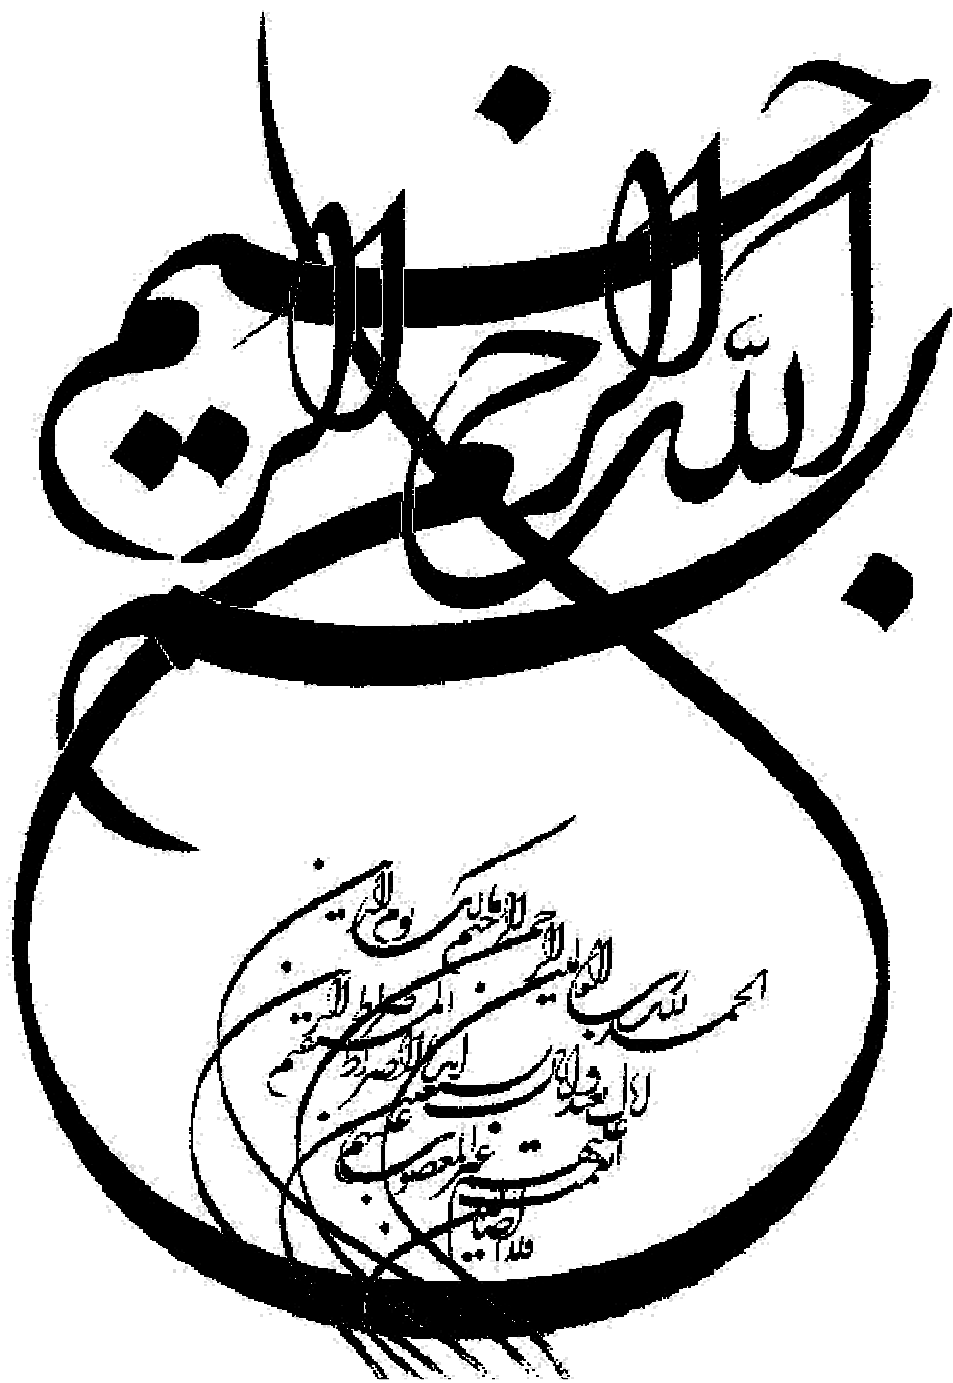 بسم الله الرحمن الرحيم
الحمد لله رب العالمين
الرحمن الرحيم
مالك يوم الدين
إياك نعبد وإياك نستعين
اهدنا الصراط المستقيم
صراط الذين
أنعمت عليهم
غير المغضوب عليهم
ولا الضالين